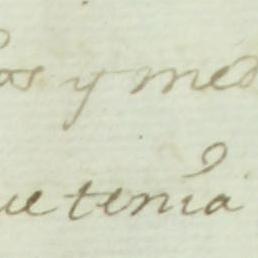 os y med
ue tenía